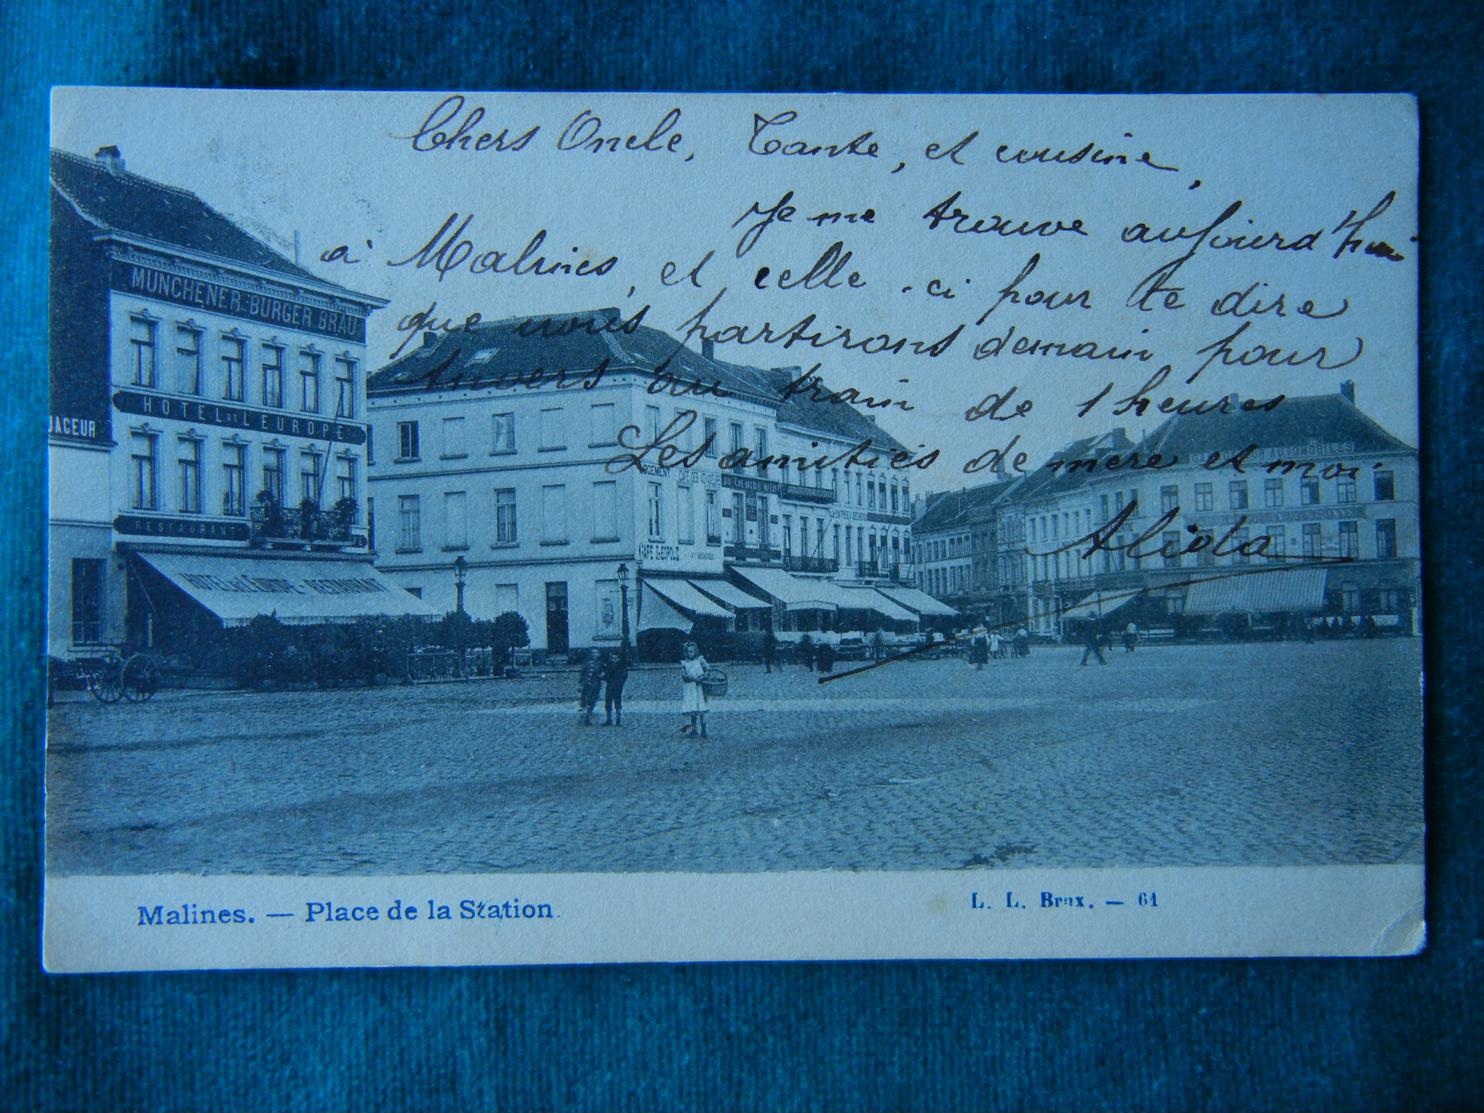 Chers Oncle, Tante, et cousine,
Je me trouve aujourd'hui
à Malines, et celle-ci pour te dire
que nous partirons demain pour
Anvers au train de 1 heures
Les amitiés de mère et moi.
Alida
MÜNCHENER BÜRGER BRÄU
HOTEL DE L'EUROPE
RESTAURANT
HOTEL DE L'EUROPE - RESTAURANT
Malines. — Place de la Station.
L. L. Brux. — 61